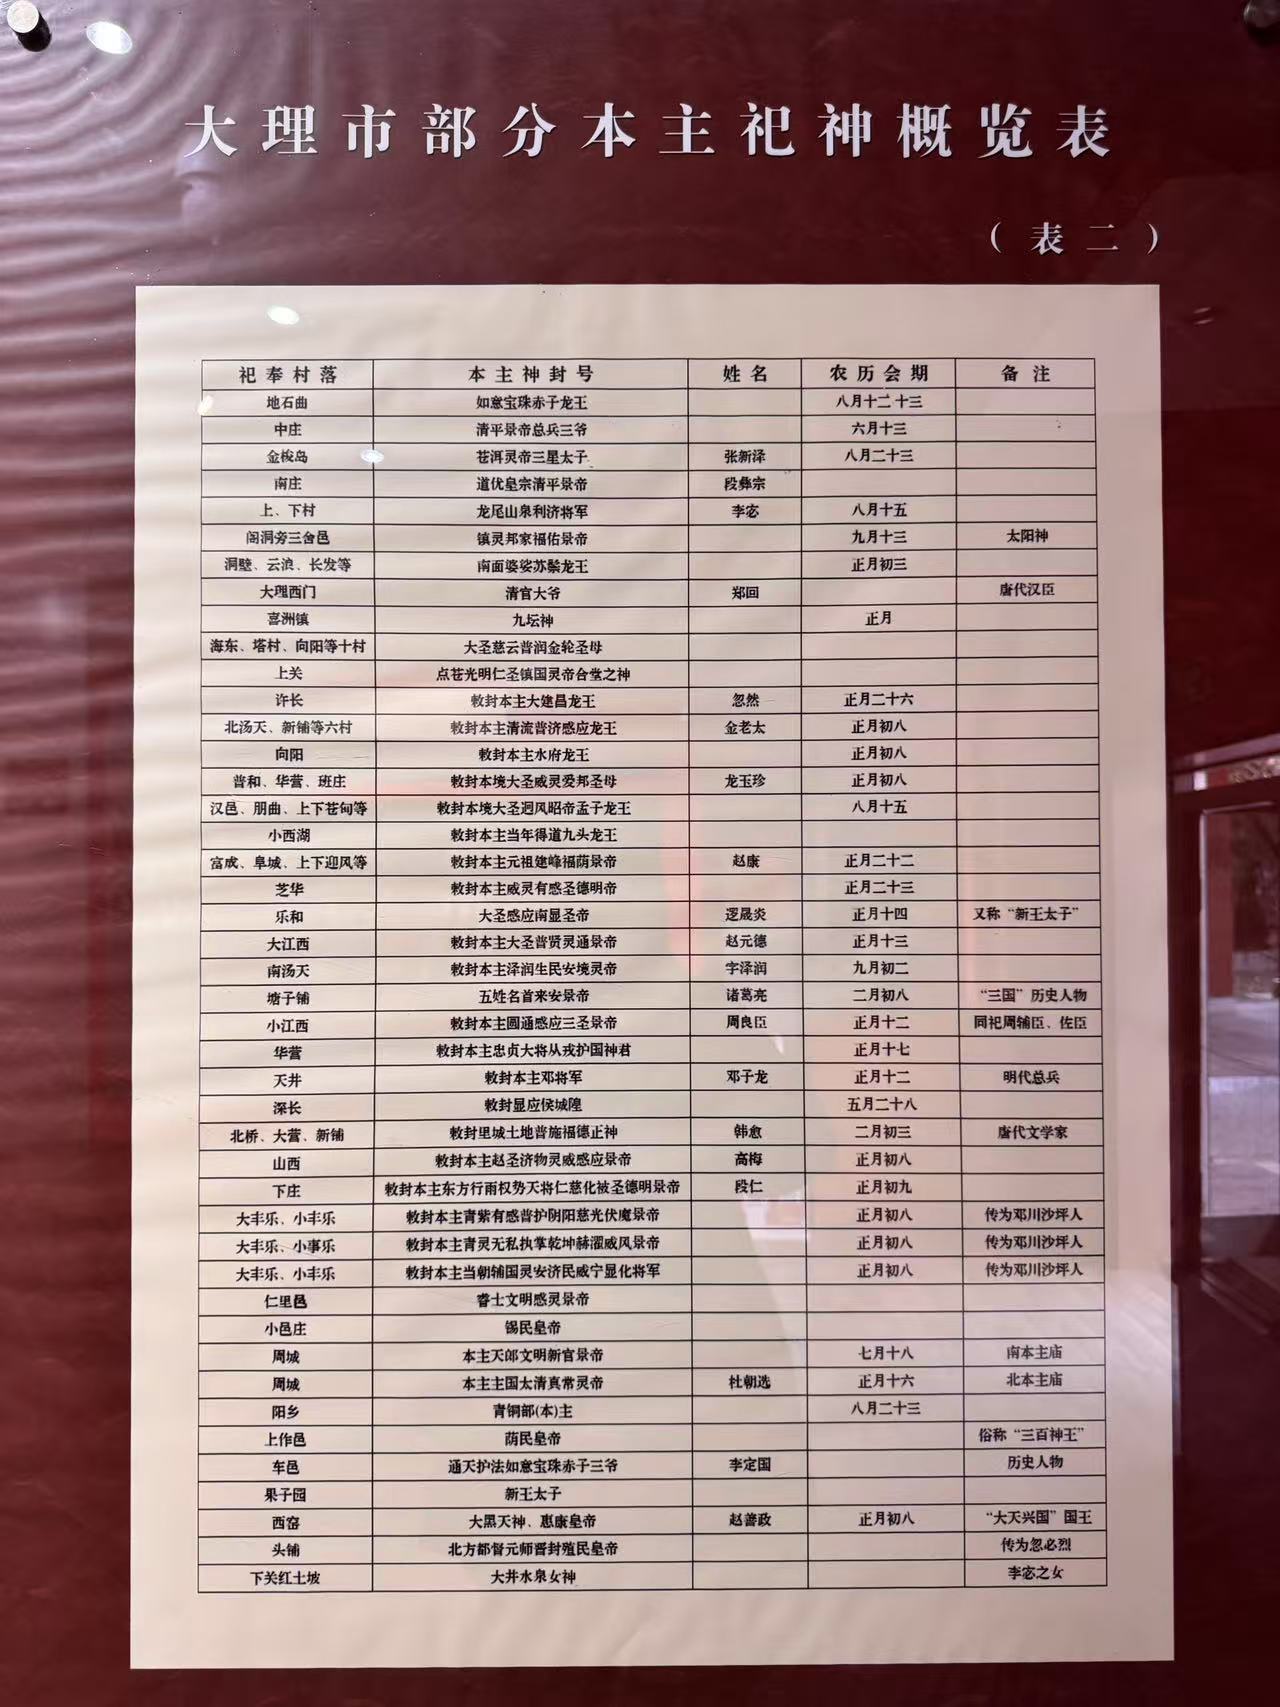 大理市部分本主祀神概览表
（表二）
祀奉村落 本主神封号 姓名 农历会期 备注
地石曲 如意宝珠赤子龙王 八月十二 十三
中庄 清平景帝总兵三爷 六月十三
金梭岛 苍洱灵帝三星太子 张新泽 八月二十三
南庄 道优皇宗清平景帝 段彝宗
上、下村 龙尾山泉利济将军 李宓 八月十五
阁洞旁三舍邑 镇灵邦家福佑景帝 九月十三 太阳神
洞壁、云浪、长发等 南面婆娑苏鬃龙王 正月初三
大理西门 清官大爷 郑回 唐代汉臣
喜洲镇 九坛神 正月
海东、塔村、向阳等十村 大圣慈云普润金轮圣母
上关 点苍光明仁圣镇国灵帝合堂之神
许长 敕封本主大建昌龙王 忽然 正月二十六
北汤天、新铺等六村 敕封本主清流普济感应龙王 金老太 正月初八
向阳 敕封本主水府龙王 正月初八
普和、华营、班庄 敕封本境大圣威灵爱邦圣母 龙玉珍 正月初八
汉邑、朋曲、上下苍甸等 敕封本境大圣迥风昭帝孟子龙王 八月十五
小西湖 敕封本主当年得道九头龙王
富成、阜城、上下迎风等 敕封本主元祖建峰福荫景帝 赵康 正月二十二
芝华 敕封本主威灵有感圣德明帝 正月二十三
乐和 大圣感应南显圣帝 逻晟炎 正月十四 又称“新王太子”
大江西 敕封本主大圣普贤灵通景帝 赵元德 正月十三
南汤天 敕封本主泽润生民安境灵帝 字泽润 九月初二
塘子铺 五姓名首来安景帝 诸葛亮 二月初八 “三国”历史人物
小江西 敕封本主圆通感应三圣景帝 周良臣 正月十二 同祀周辅臣、佐臣
华营 敕封本主忠贞大将从戎护国神君 正月十七
天井 敕封本主邓将军 邓子龙 正月十二 明代总兵
深长 敕封显应侯城隍 五月二十八
北桥、大营、新铺 敕封里城土地普施福德正神 韩愈 二月初三 唐代文学家
山西 敕封本主赵圣济物灵威感应景帝 高梅 正月初八
下庄 敕封本主东方行雨权势天将仁慈化被圣德明景帝 段仁 正月初九
大丰乐、小丰乐 敕封本主青紫有感普护阴阳慈光伏魔景帝 正月初八 传为邓川沙坪人
大丰乐、小事乐 敕封本主青灵无私执掌乾坤赫濯威风景帝 正月初八 传为邓川沙坪人
大丰乐、小丰乐 敕封本主当朝辅国灵安济民威宁显化将军 正月初八 传为邓川沙坪人
仁里邑 睿士文明感灵景帝
小邑庄 锡民皇帝
周城 本主天郎文明新官景帝 七月十八 南本主庙
周城 本主主国太清真常灵帝 杜朝选 正月十六 北本主庙
阳乡 青铜部(本)主 八月二十三
上作邑 荫民皇帝 俗称“三百神王”
车邑 通天护法如意宝珠赤子三爷 李定国 历史人物
果子园 新王太子
西窑 大黑天神、惠康皇帝 赵善政 正月初八 “大天兴国”国王
头铺 北方都督元师晋封殖民皇帝 传为忽必烈
下关红土坡 大井水泉女神 李宓之女